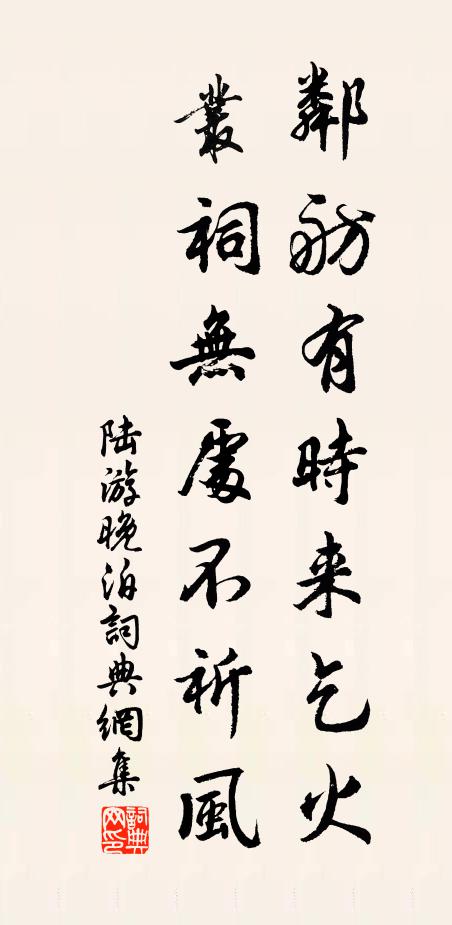 鄰舫有時来乞火
叢祠無處不祈風
陆游晚泊詞典網集
詞典网印